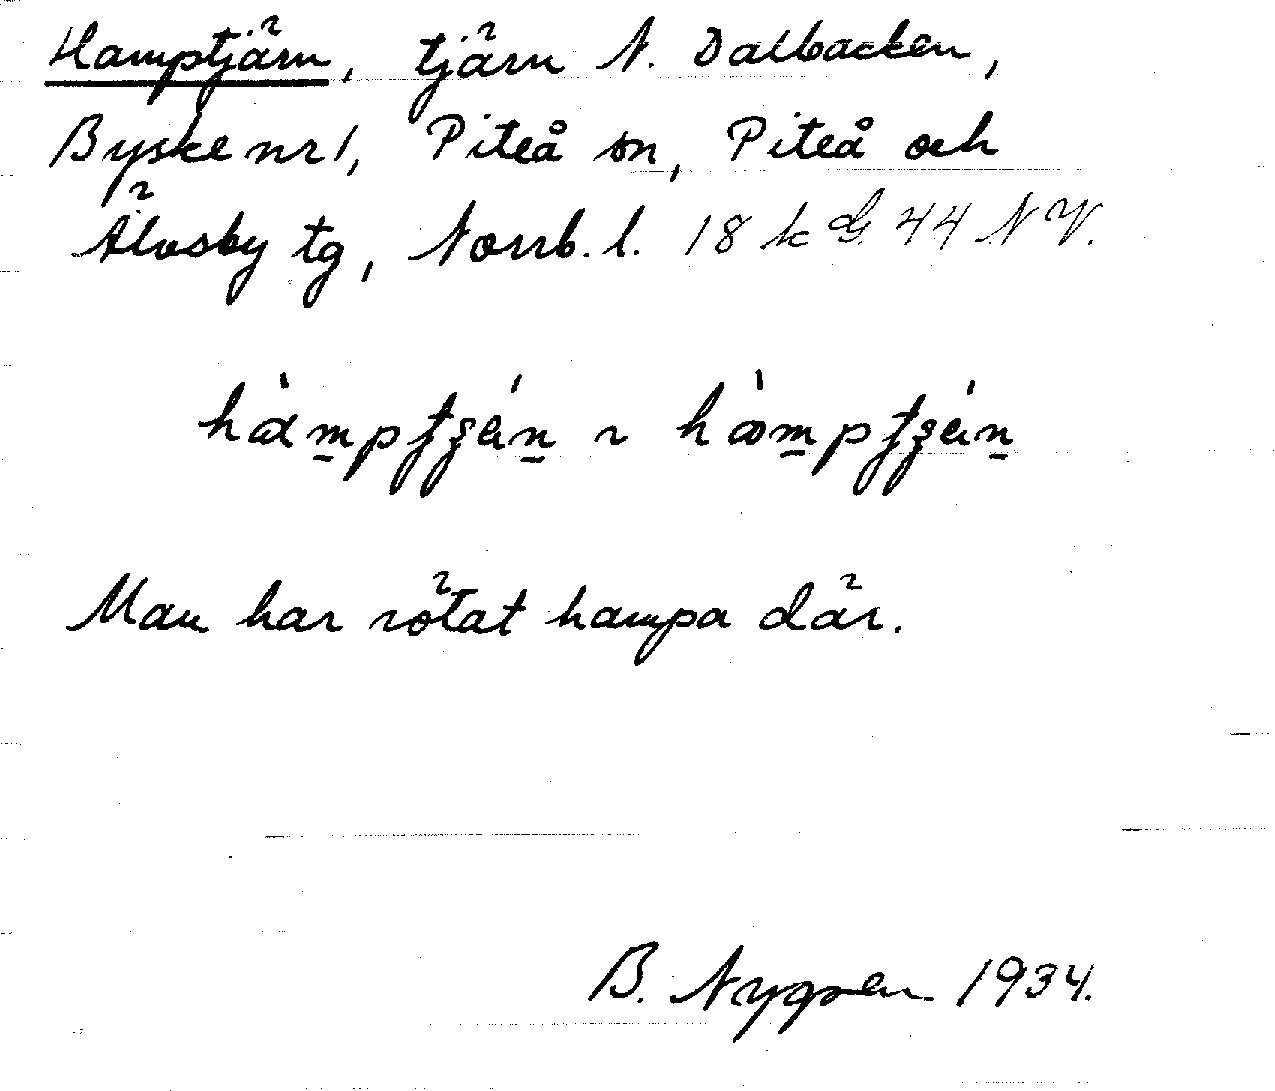 Hamptjärn, tjärn N. Dalbacken,
Byske nr 1, Piteå sn, Piteå och
Älvsby tg, Norrb. l. 18 k G. 44 NV.
Man har rötat hampa där.
B. Nygren 1934.